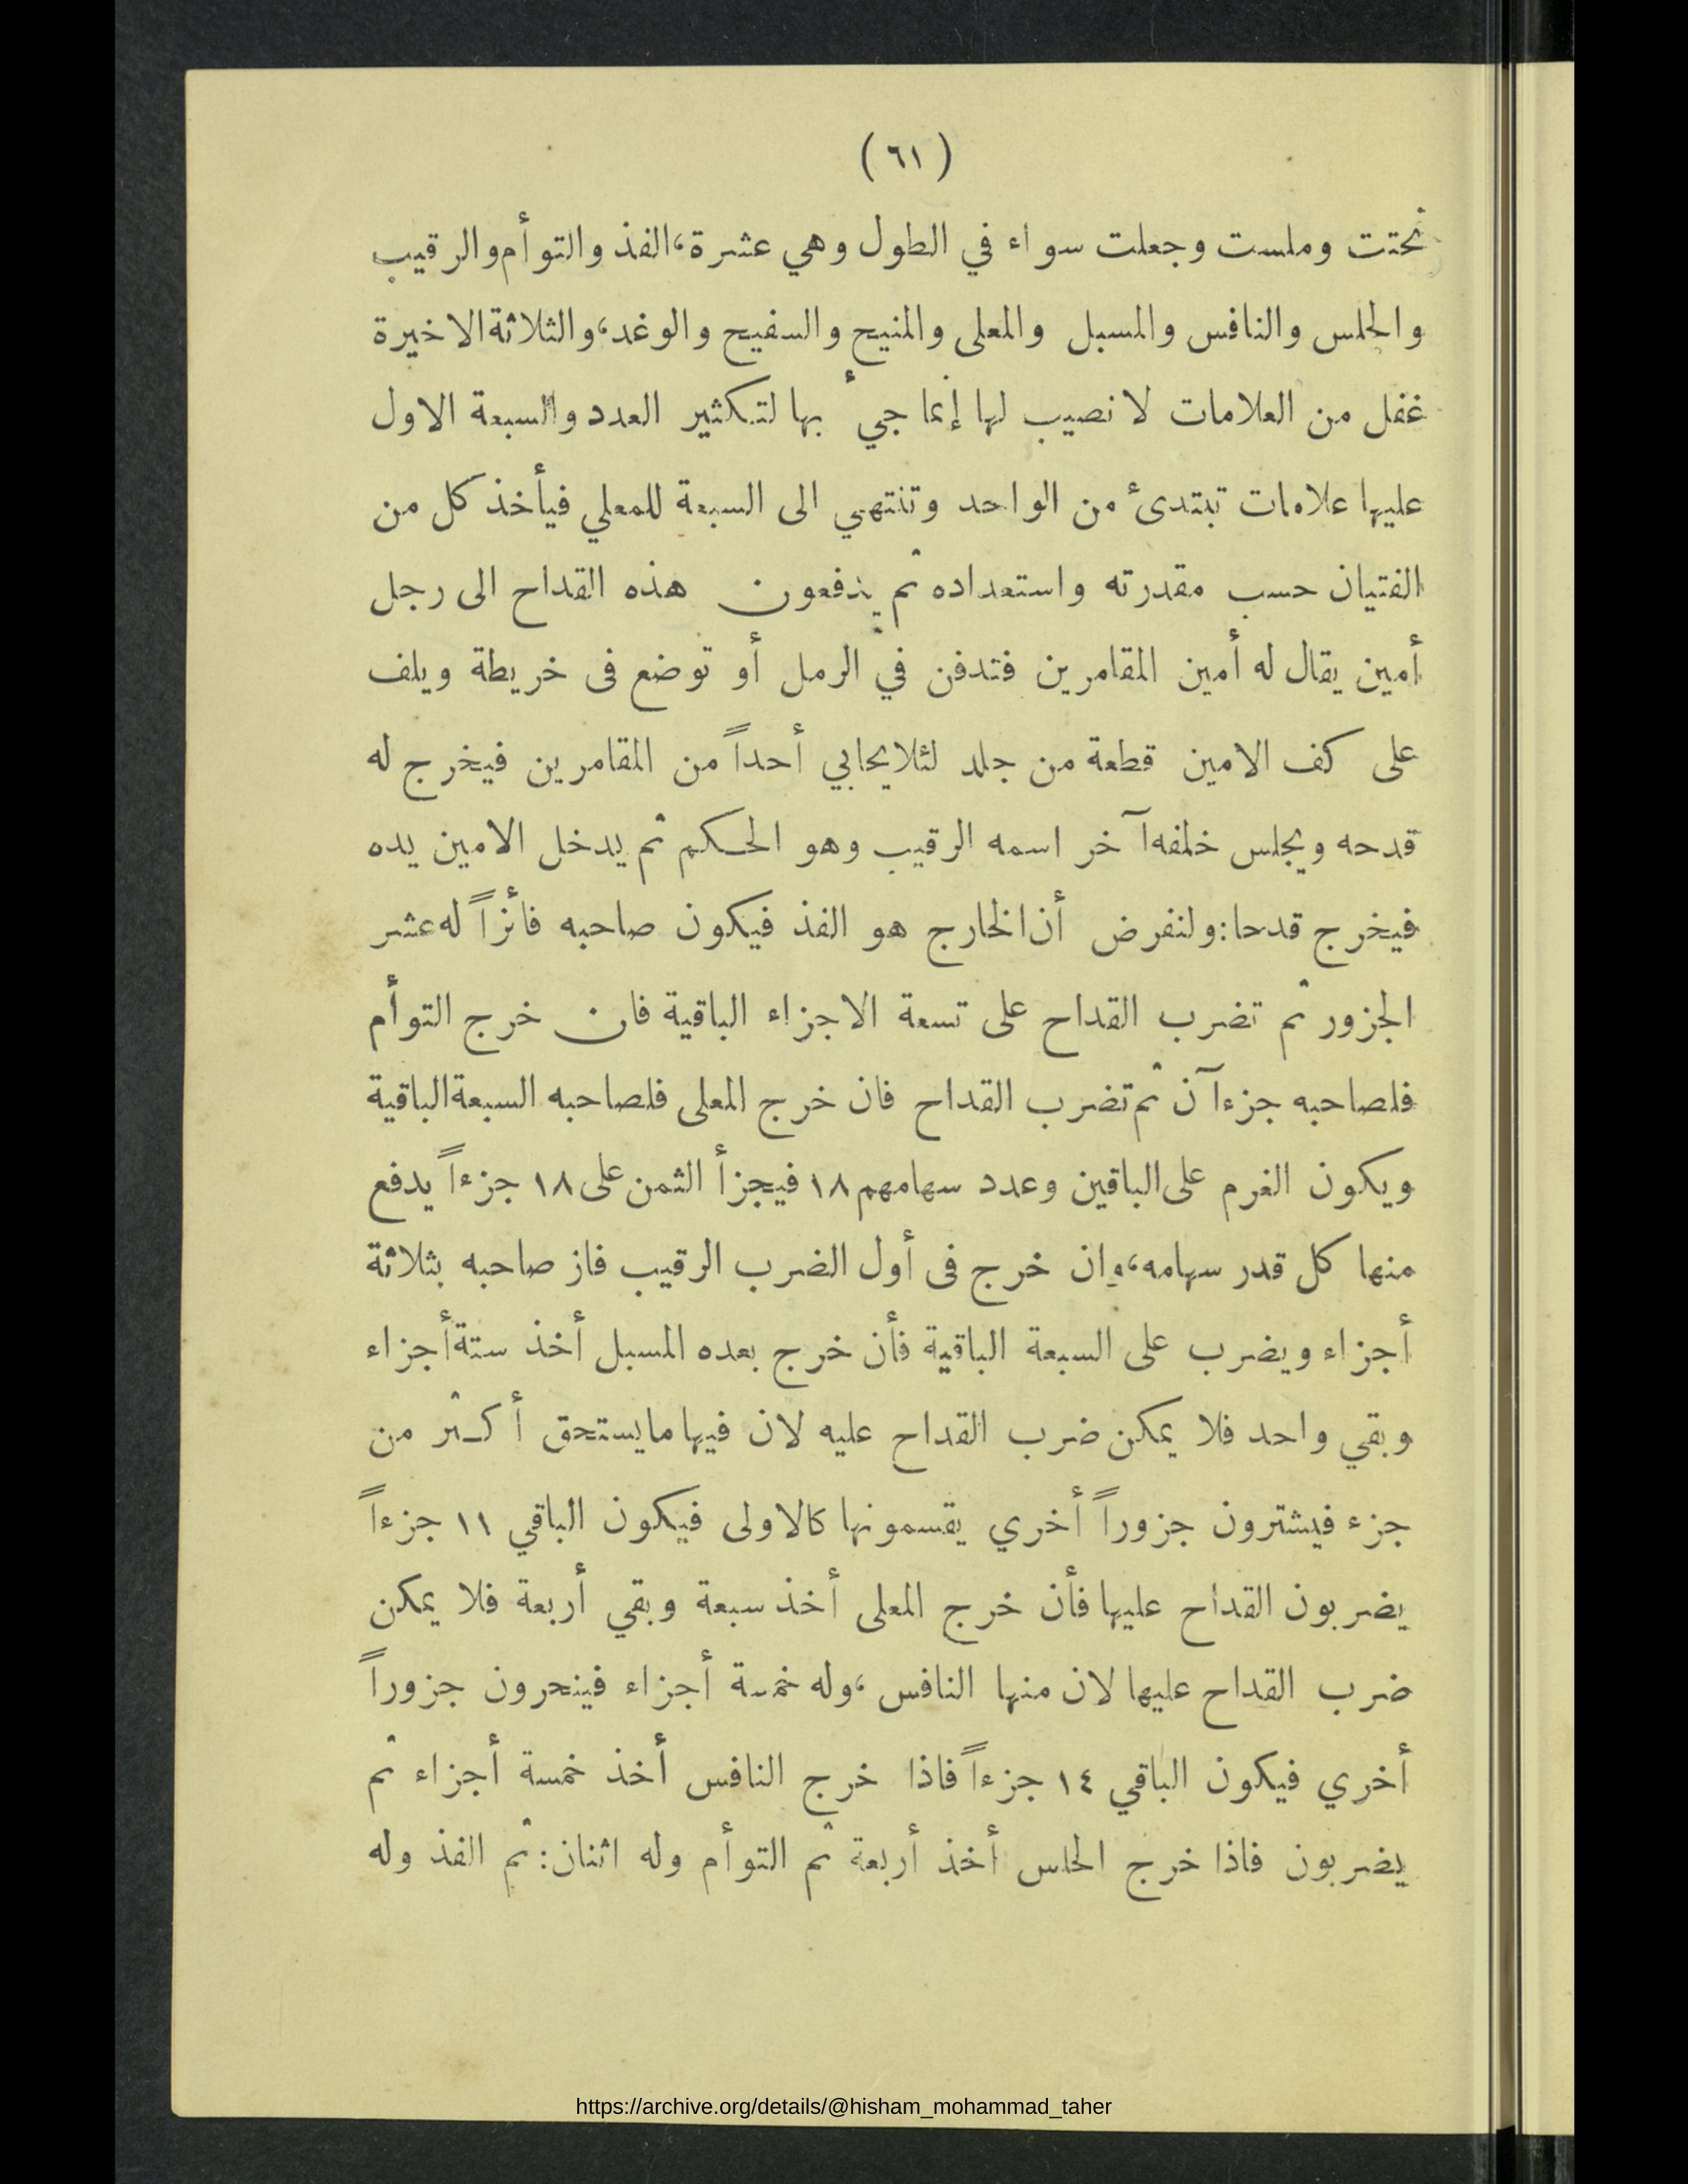 (٦١)
نحتت وملست وجعلت سواء في الطول وهي عشرة، الفذ والتوأم والرقيب
والحلس والنافس والمسبل والمعلى والمنيح والسفيح والوغد، والثلاثة الاخيرة
غفل من العلامات لا نصيب لها إنما جيء بها لتكثير العدد والسبعة الاول
عليها علامات تبتدئ من الواحد وتنتهي الى السبعة للمعلي فيأخذ كل من
الفتيان حسب مقدرته واستعداده ثم يدفعون هذه القداح الى رجل
أمين يقال له أمين المقامرين فتدفن في الرمل أو توضع فى خريطة ويلف
على كف الامين قطعة من جلد لئلا يحابي أحداً من المقامرين فيخرج له
قدحه ويجلس خلفه آخر اسمه الرقيب وهو الحكم ثم يدخل الامين يده
فيخرج قدحا: ولنفرض أن الخارج هو الفذ فيكون صاحبه فائزاً له عشر
الجزور ثم تضرب القداح على تسعة الاجزاء الباقية فان خرج التوأم
فلصاحبه جزءآن ثم تضرب القداح فان خرج المعلى فلصاحبه السبعة الباقية
ويكون الغرم على الباقين وعدد سهامهم ١٨ فيجزأ الثمن على ١٨ جزءاً يدفع
منها كل قدر سهامه، وإن خرج فى أول الضرب الرقيب فاز صاحبه بثلاثة
أجزاء ويضرب على السبعة الباقية فأن خرج بعده المسبل أخذ ستة أجزاء
وبقي واحد فلا يمكن ضرب القداح عليه لان فيها ما يستحق أكثر من
جزء فيشترون جزوراً أخري يقسمونها كالاولى فيكون الباقي ١١ جزءاً
يضربون القداح عليها فأن خرج المعلى أخذ سبعة وبقي أربعة فلا يمكن
ضرب القداح عليها لان منها النافس، وله خمسة أجزاء فينحرون جزوراً
أخري فيكون الباقي ١٤ جزءاً فاذا خرج النافس أخذ خمسة أجزاء ثم
يضربون فاذا خرج الحلس أخذ أربعة ثم التوأم وله اثنان: ثم الفذ وله
https://archive.org/details/@hisham_mohammad_taher